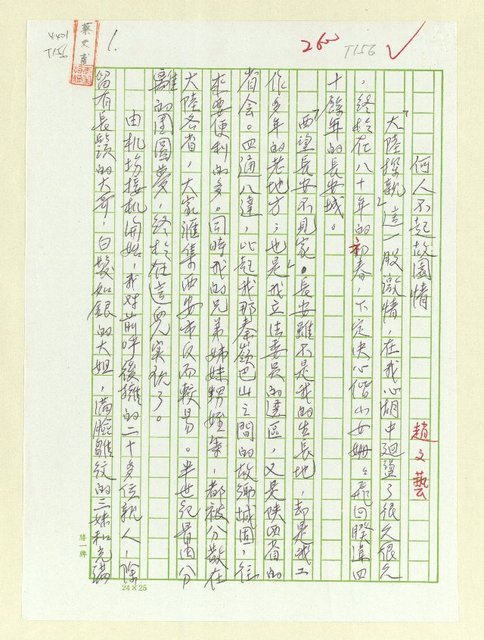 4401
T156
葉文甫
1.
260
T156
何人不起故園情
趙文藝
「大陸探親」這一股激情，在我心湖中迴盪了很久很久
，終於在八十年的初春，下定決心偕小女姍姍飛回睽違四
十餘年的長安城。
「西望長安不見家。」長安雖不是我的生長地，却是我工
作多年的老地方；也是我立法委員的選區，又是陝西省的
省会。四通八達，比起我那秦嶺巴山之間的故鄉城固，往
來要便利的多。同時我的兄弟姊妹甥姪輩，都被分散在
大陸各省，大家滙集西安市反而較易。半世紀骨肉分
離的團圓夢，終於在這兒实現了。
由机場接机開始，我对前呼後擁的二十多位親人，除
留有長鬍的大哥，白髮如銀的大姐，滿臉皺紋的三妹和充滿
勝一牌
24×25